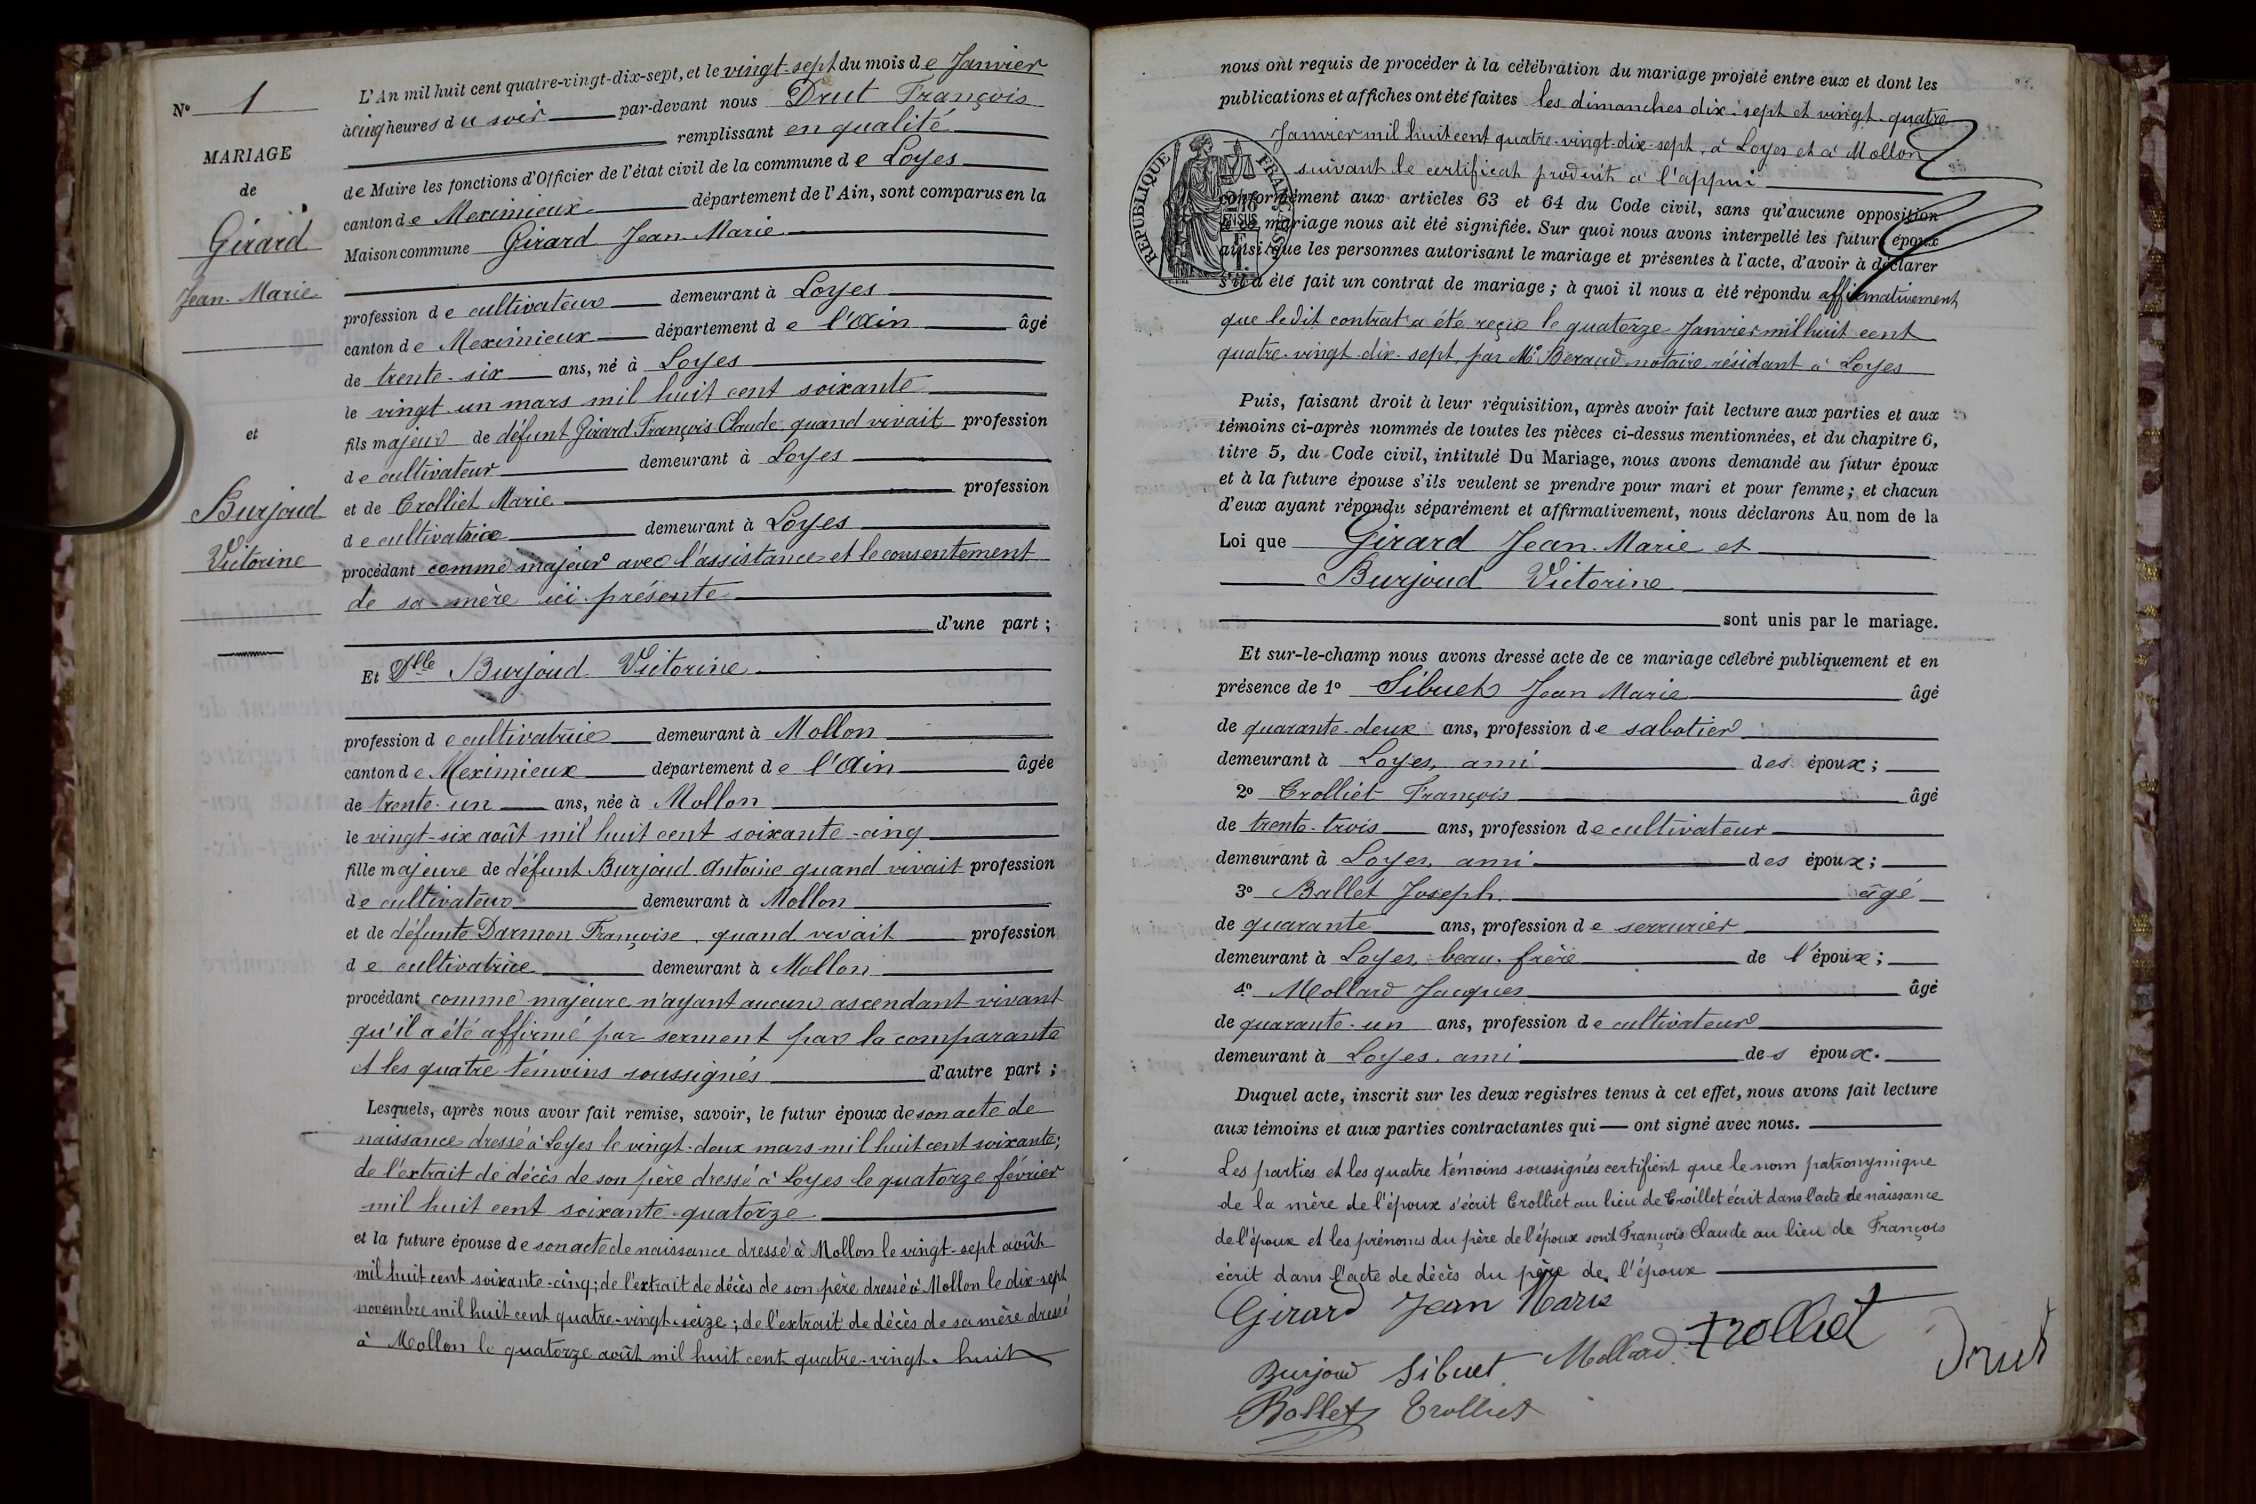 N° 1
MARIAGE
de
Girard
Jean-Marie
et
Burjoud
Victorine
L'An mil huit cent quatre-vingt-dix-sept, et le vingt-sept du mois de Janvier
à cinq heures du soir par-devant nous Drut François
remplissant en qualité
de Maire les fonctions d'Officier de l'état civil de la commune de Loyes
canton de Meximieux département de l'Ain, sont comparus en la
Maison commune Girard Jean-Marie
profession de cultivateur demeurant à Loyes
canton de Meximieux département de l'Ain âgé
de trente-six ans, né à Loyes
le vingt un mars mil huit cent soixante
fils majeur de défunt Girard François Claude quand vivait profession
de cultivateur demeurant à Loyes
et de Crolliet Marie profession
de cultivatrice demeurant à Loyes
procédant comme majeur avec l'assistance et le consentement
de sa mère ici présente
d'une part ;
Et Dlle Burjoud Victorine
profession de cultivatrice demeurant à Mollon
canton de Meximieux département de l'Ain âgée
de trente-un ans, née à Mollon
le vingt-six août mil huit cent soixante-cinq
fille majeure de défunt Burjoud Antoine quand vivait profession
de cultivateur demeurant à Mollon
et de défunte Darmon Françoise, quand vivait profession
de cultivatrice demeurant à Mollon
procédant comme majeure n'ayant aucun ascendant vivant
qu'il a été affirmé par serment par la comparante
et les quatre témoins soussignés d'autre part ;
Lesquels, après nous avoir fait remise, savoir, le futur époux de son acte de
naissance dressé à Loyes le vingt-deux mars mil huit cent soixante;
de l'extrait de décès de son père dressé à Loyes le quatorze février
mil huit cent soixante-quatorze
et la future épouse de son acte de naissance dressé à Mollon le vingt-sept août
mil huit cent soixante-cinq; de l'extrait de décès de son père dressé à Mollon le dix-sept
novembre mil huit cent quatre-vingt-seize; de l'extrait de décès de sa mère dressé
à Mollon le quatorze août mil huit cent quatre-vingt-huit
nous ont requis de procéder à la célébration du mariage projeté entre eux et dont les
publications et affiches ont été faites les dimanches dix-sept et vingt-quatre
Janvier mil huit cent quatre-vingt-dix-sept, à Loyes et à Mollon
suivant le certificat produit à l'appui
RÉPUBLIQUE FRANÇAISE
conformément aux articles 63 et 64 du Code civil, sans qu'aucune opposition
à ce mariage nous ait été signifiée. Sur quoi nous avons interpellé les futurs époux
ainsi que les personnes autorisant le mariage et présentes à l'acte, d'avoir à déclarer
s'il a été fait un contrat de mariage ; à quoi il nous a été répondu affirmativement,
que ledit contrat a été reçu le quatorze Janvier mil huit cent
quatre-vingt-dix-sept, par Me Beraud notaire résidant à Loyes
Puis, faisant droit à leur réquisition, après avoir fait lecture aux parties et aux
témoins ci-après nommés de toutes les pièces ci-dessus mentionnées, et du chapitre 6,
titre 5, du Code civil, intitulé Du Mariage, nous avons demandé au futur époux
et à la future épouse s'ils veulent se prendre pour mari et pour femme ; et chacun
d'eux ayant répondu séparément et affirmativement, nous déclarons Au nom de la
Loi que Girard Jean-Marie et
Burjoud Victorine
sont unis par le mariage.
Et sur-le-champ nous avons dressé acte de ce mariage célébré publiquement et en
présence de 1° Sibuet Jean Marie âgé
de quarante-deux ans, profession de sabotier
demeurant à Loyes, ami des époux ;
2° Crolliet François âgé
de trente-trois ans, profession de cultivateur
demeurant à Loyes, ami des époux ;
3° Ballet Joseph âgé
de quarante ans, profession de serrurier
demeurant à Loyes, beau-frère de l'époux ;
4° Mollard Jacques âgé
de quarante-un ans, profession de cultivateur
demeurant à Loyes, ami des époux.
Duquel acte, inscrit sur les deux registres tenus à cet effet, nous avons fait lecture
aux témoins et aux parties contractantes qui — ont signé avec nous.
Les parties et les quatre témoins soussignés certifient que le nom patronymique
de la mère de l'époux s'écrit Crolliet au lieu de Croillet écrit dans l'acte de naissance
de l'époux et les prénoms du père de l'époux sont François Claude au lieu de François
écrit dans l'acte de décès du père de l'époux
Girard Jean Marie
Burjoud Sibuet Mollard Trolliet Drut
Ballet Trolliet